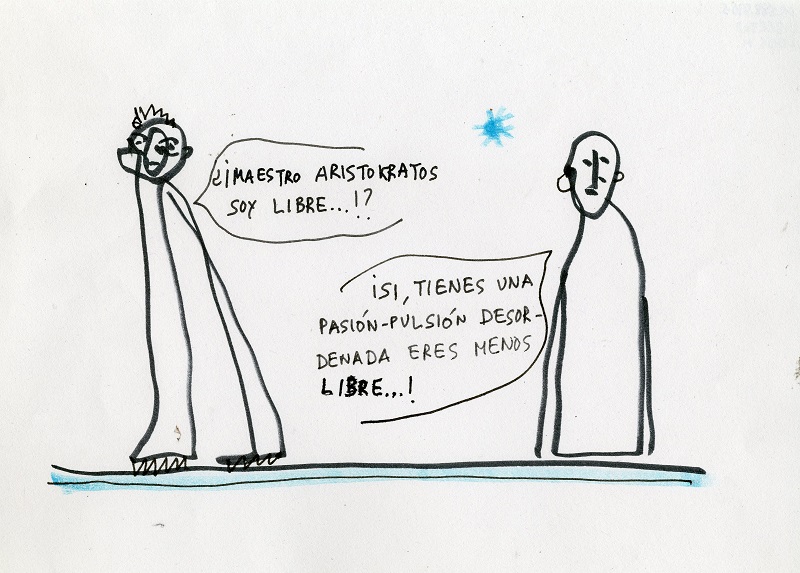 ¿¡MAESTRO ARISTOKRATOS
SOY LIBRE...!?
¡SI, TIENES UNA
PASIÓN-PULSIÓN DESOR-
DENADA ERES MENOS
LIBRE...!